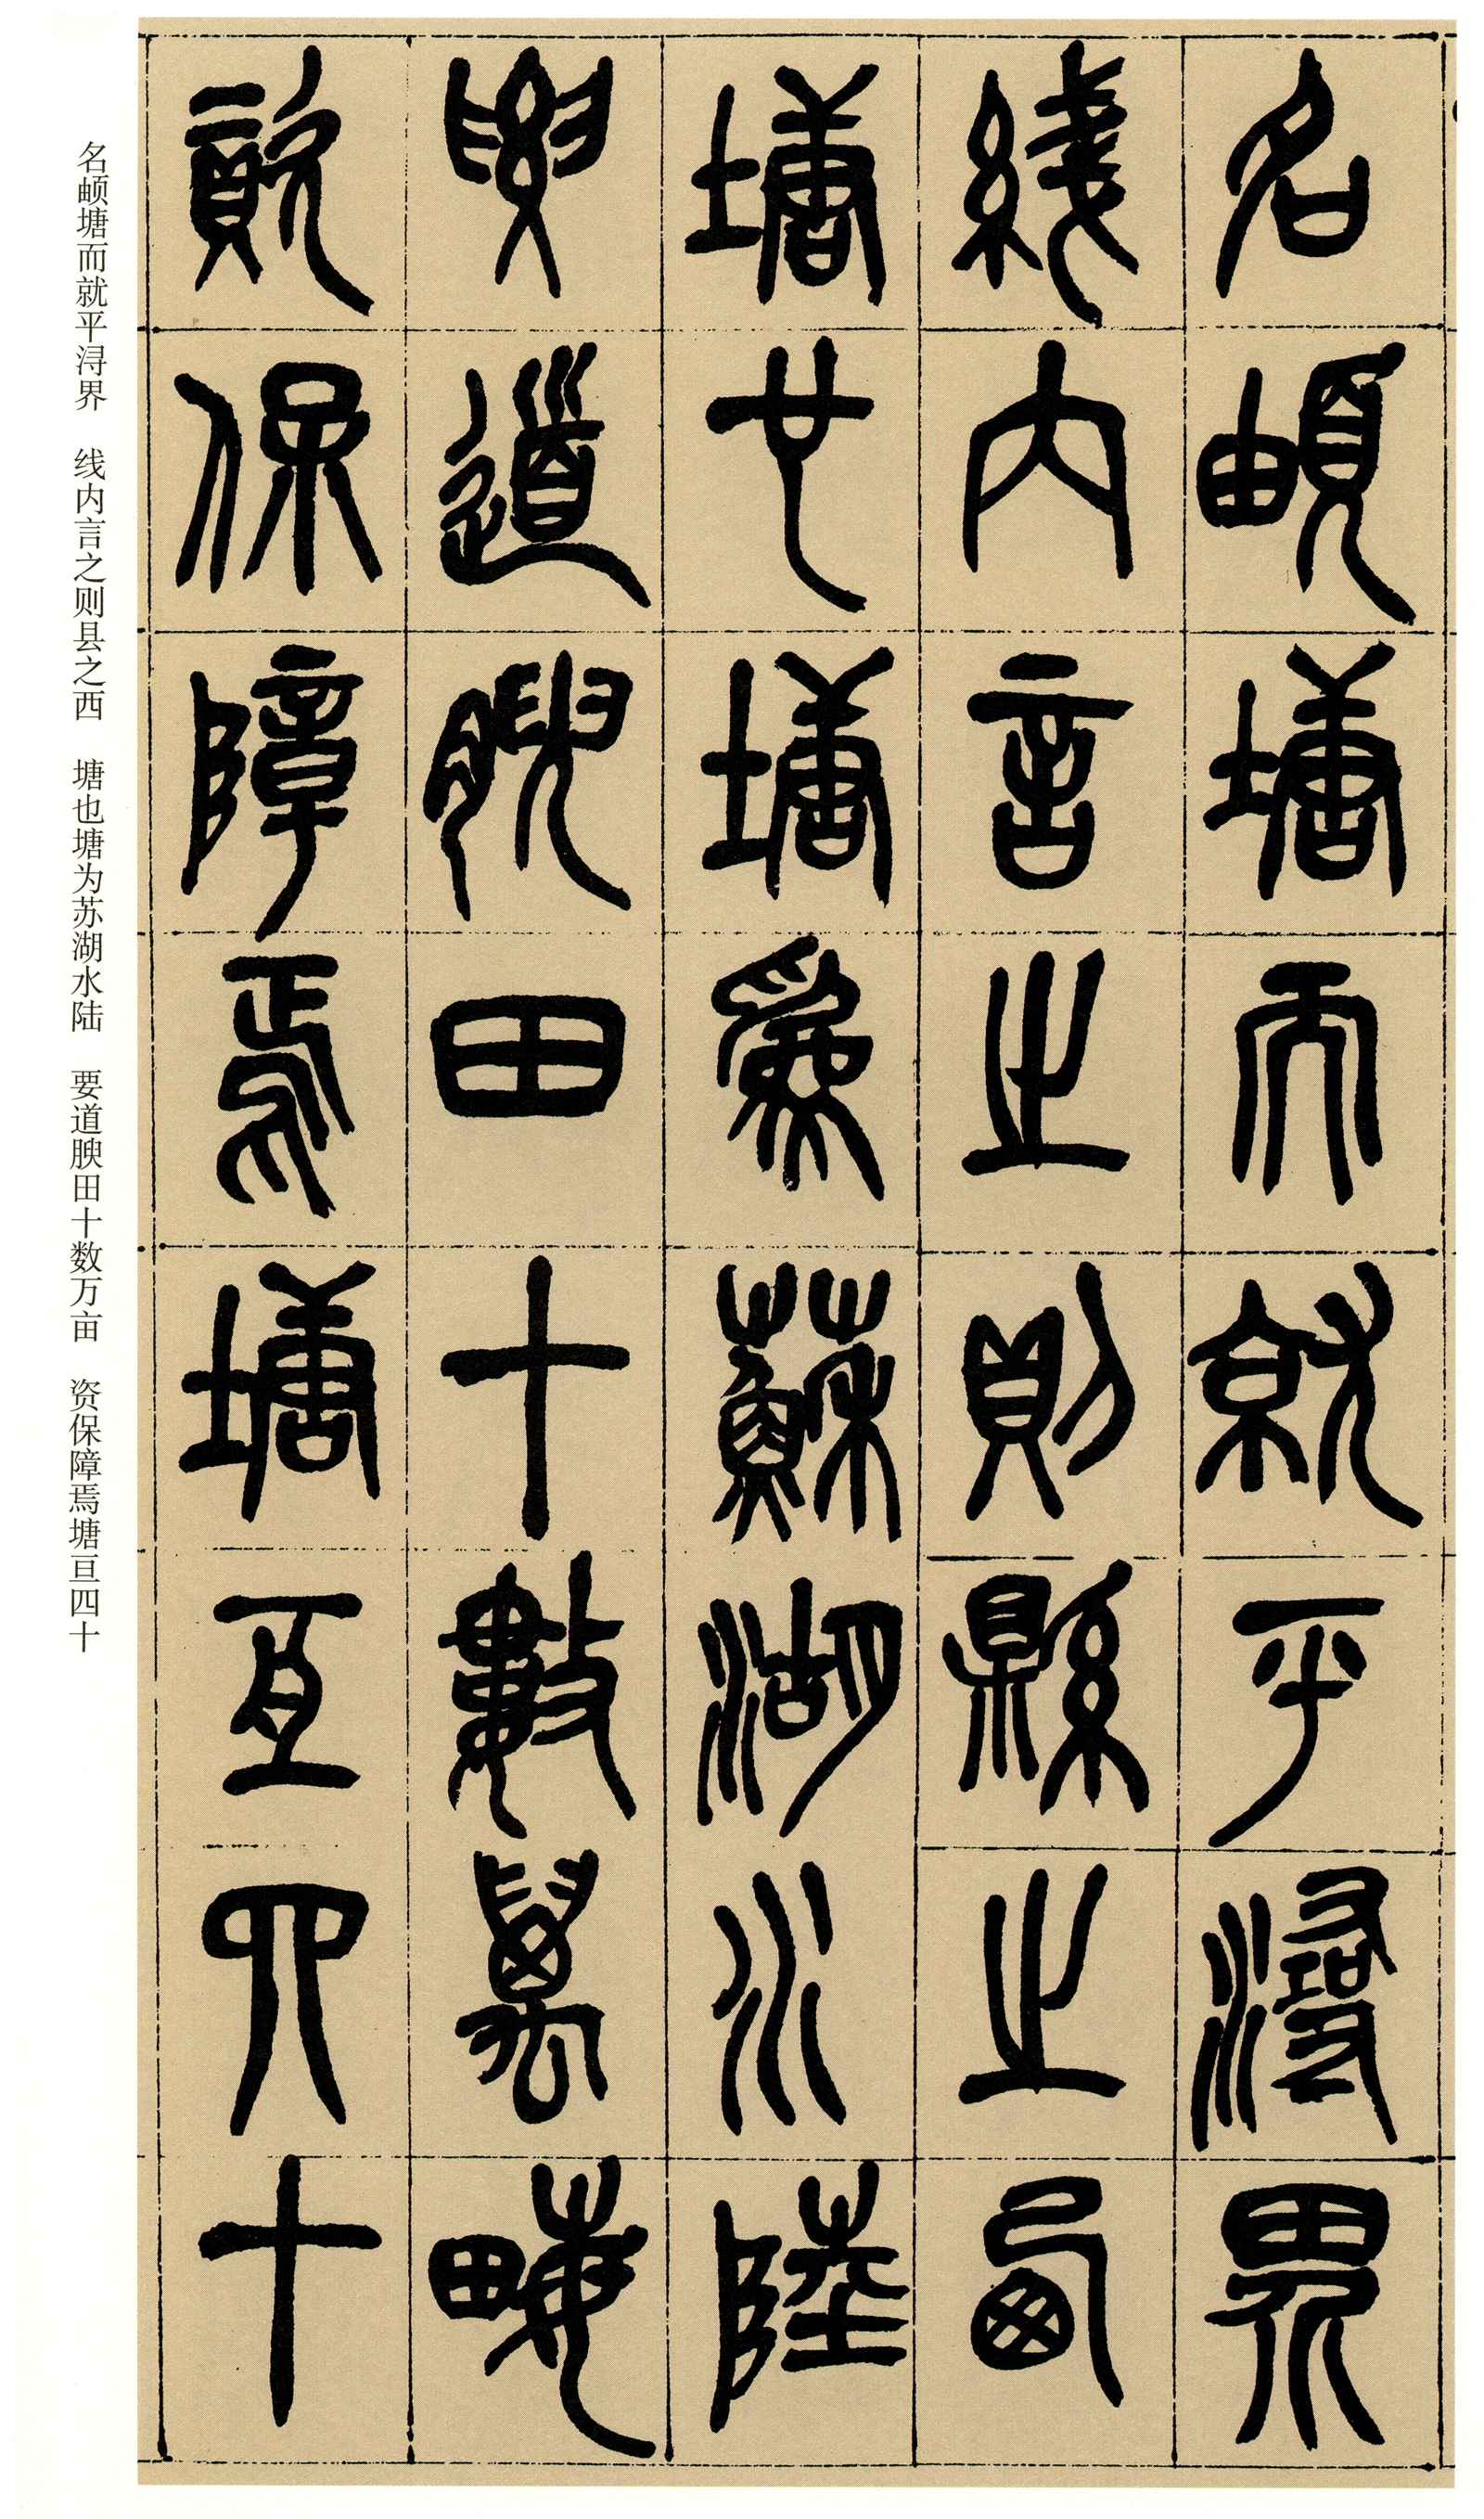 名頔塘而就平潯界
綫内言之則縣之西
塘也塘爲蘇湖水陸
要道腴田十數萬畮
資保障焉塘亙四十
名頔塘而就平浔界　线内言之则县之西　塘也塘为苏湖水陆　要道腴田十数万亩　资保障焉塘亘四十